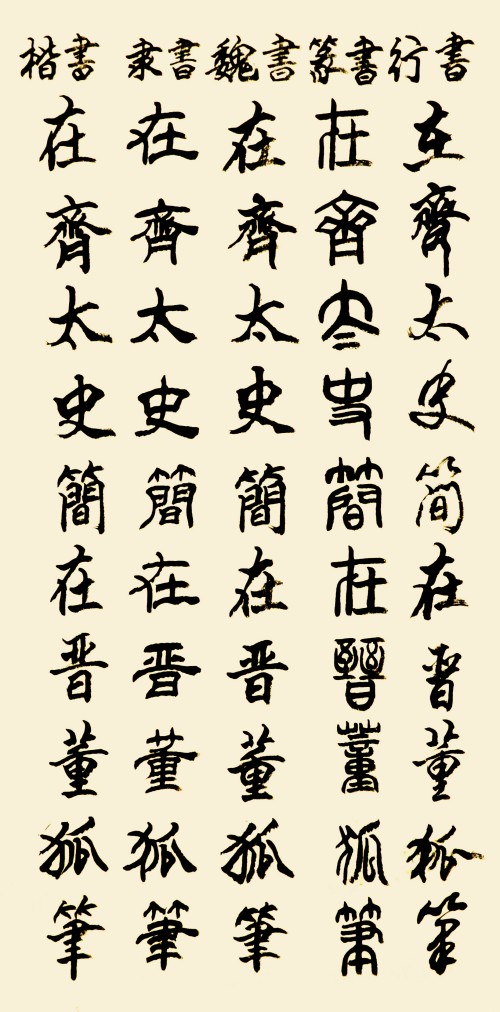 楷書 隶書 魏書 篆書 行書
在齊太史簡在晋董狐筆
在齊太史簡在晋董狐筆
在齊太史簡在晋董狐筆
在齊太史簡在晉董狐筆
在齊太史簡在晋董狐筆